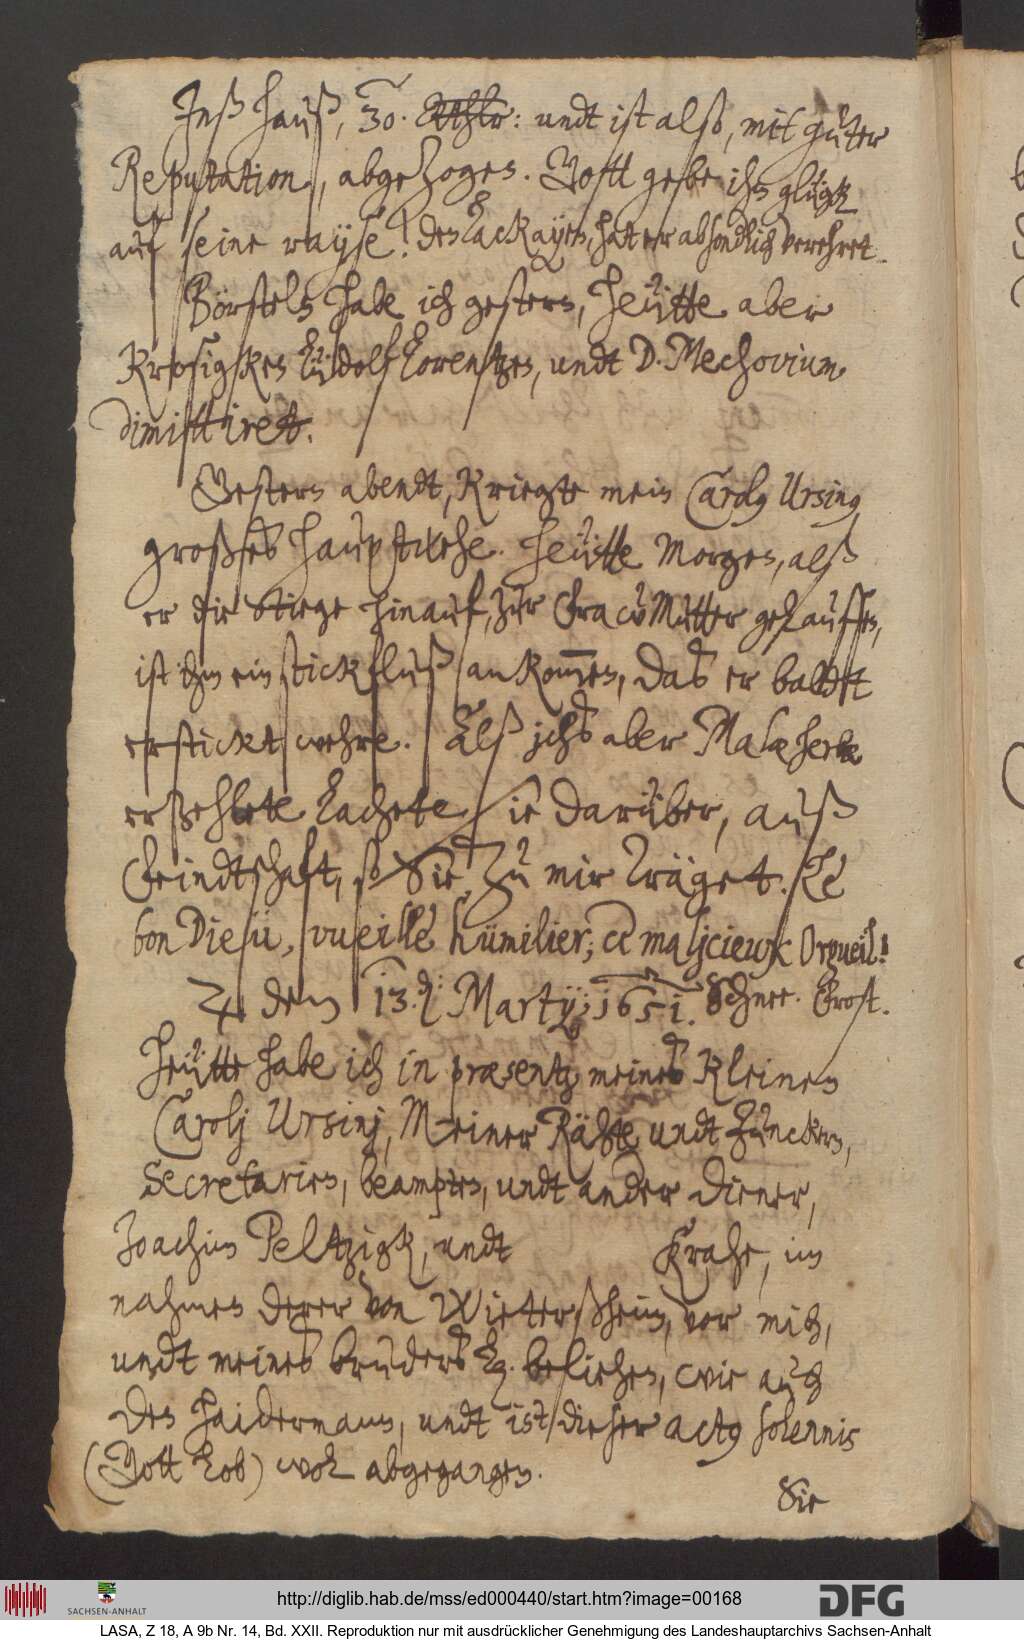 Jnß hauß, 30. Rthlr: undt ist alß, mit guter
Reputation, abgezogen. Gott gebe ihm glügk
auf seine rayse! den Lackayen, hat er absonderlich verehret.
Börsteln habe ich gestern, heütte aber
Krosigken Ludolf Lorentzen, undt D. Mechovium
dimittiret.
Gestern abendt, kriegte mein Carolus Ursinus
großes hauptwehe. heütte Morgen, alß
er die Stiege hinauf, zur Fraw Mutter gelauffen,
ist ihm ein stickfluß ankommen, das er baldt
erstickt wehre. Alß ichs aber Malæherbæ
erzehlete lachete sie darüber, auß
Feindtschaft, so Sie, zu mir träget. Le
bon Dieu, vueille humilier, ce malicieux Orgueil!
♃ den 13. d: Martij; 1651. Schnee. Frost.
Heütte habe ich in præsentz meines kleinen
Carolj Ursinj, Meiner Rähte undt Junckern,
Secretarien, beampten, undt ander Diener,
Joachim Peltzigk, undt Krahe, im
nahmen derer von Wietersheim, vor mich,
undt meines bruders Ld. beliehen, wie auch
den Haidermann, undt ist dieser actus solennis
(Gott lob) wol abgegangen.
Sie
SACHSEN-ANHALT
http://diglib.hab.de/mss/ed000440/start.htm?image=00168
DFG
LASA, Z 18, A 9b Nr. 14, Bd. XXII. Reproduktion nur mit ausdrücklicher Genehmigung des Landeshauptarchivs Sachsen-Anhalt